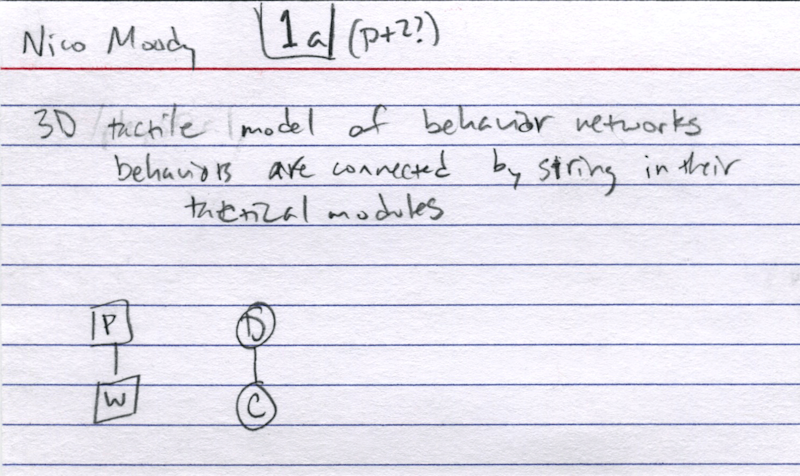 Nico Moody 1a (p+2?)
3D tactile model of behavior networks
behaviors are connected by string in their
modules
P D
W C